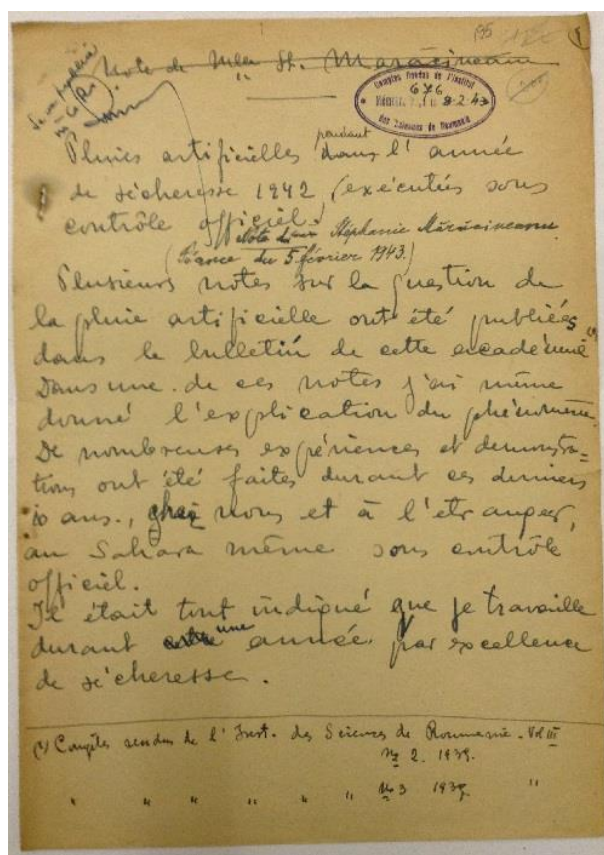 195
Note de Mlle St. Mărăcineanu
Se va publica
în C.R.
Comptes Rendus de l'Institut
676
8-2-43
des Sciences de Roumanie
Pluies artificielles dans pendant l'année
de sécheresse 1942 (exécutées sous
contrôle officiel.)
Note de Stéphanie Mărăcineanu
(Séance du 5 février 1943.)
Plusieurs notes sur la question de
la pluie artificielle ont été publiées
dans le bulletin de cette académie (1)
Dans une de ces notes j'ai même
donné l'explication du phénomène.
De nombreuses expériences et demonstra=
tions ont été faites durant ces derniers
10 ans., chez nous et à l'etranger,
au Sahara même sous contrôle
officiel.
Il était tout indiqué que je travaille
durant une année par excellence
de sécheresse.
(1) Comptes rendus de l'Inst. des Sciences de Roumanie. Vol III
No 2. 1939.
" " " " " " No 3 1939. "